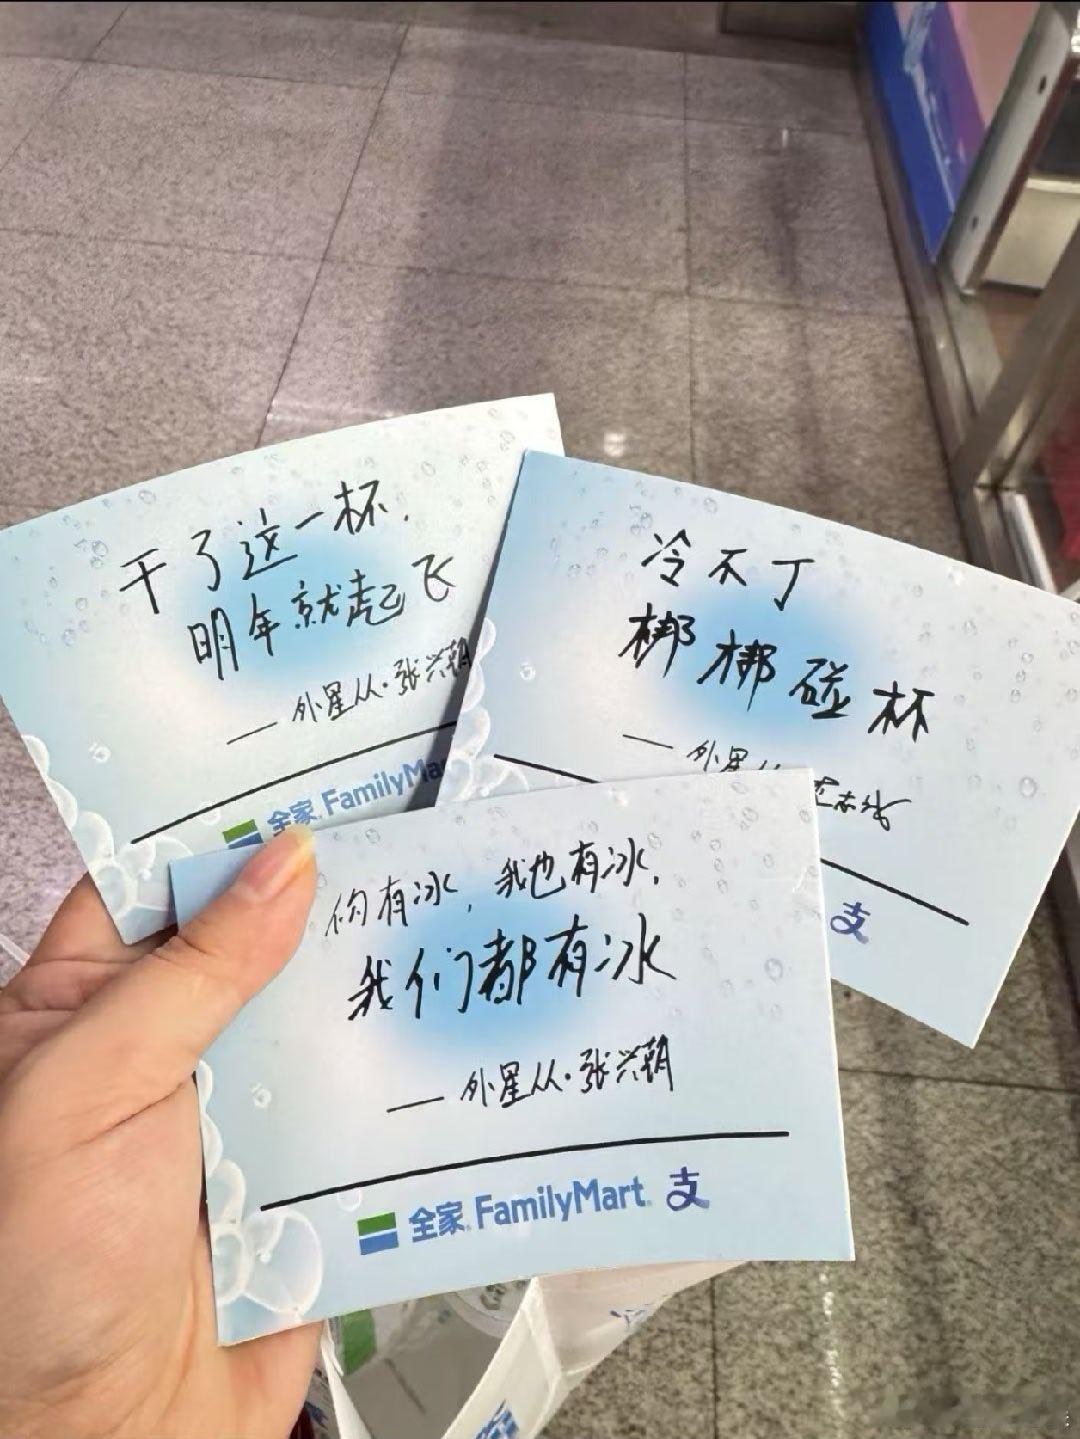 干了这一杯,
明年就起飞
——外星从·张兴朝
全家 FamilyMa
冷不丁
梆梆碰杯
——外星
志
支
你有冰, 我也有冰,
我们都有冰
——外星从·张兴朝
全家 FamilyMart 支